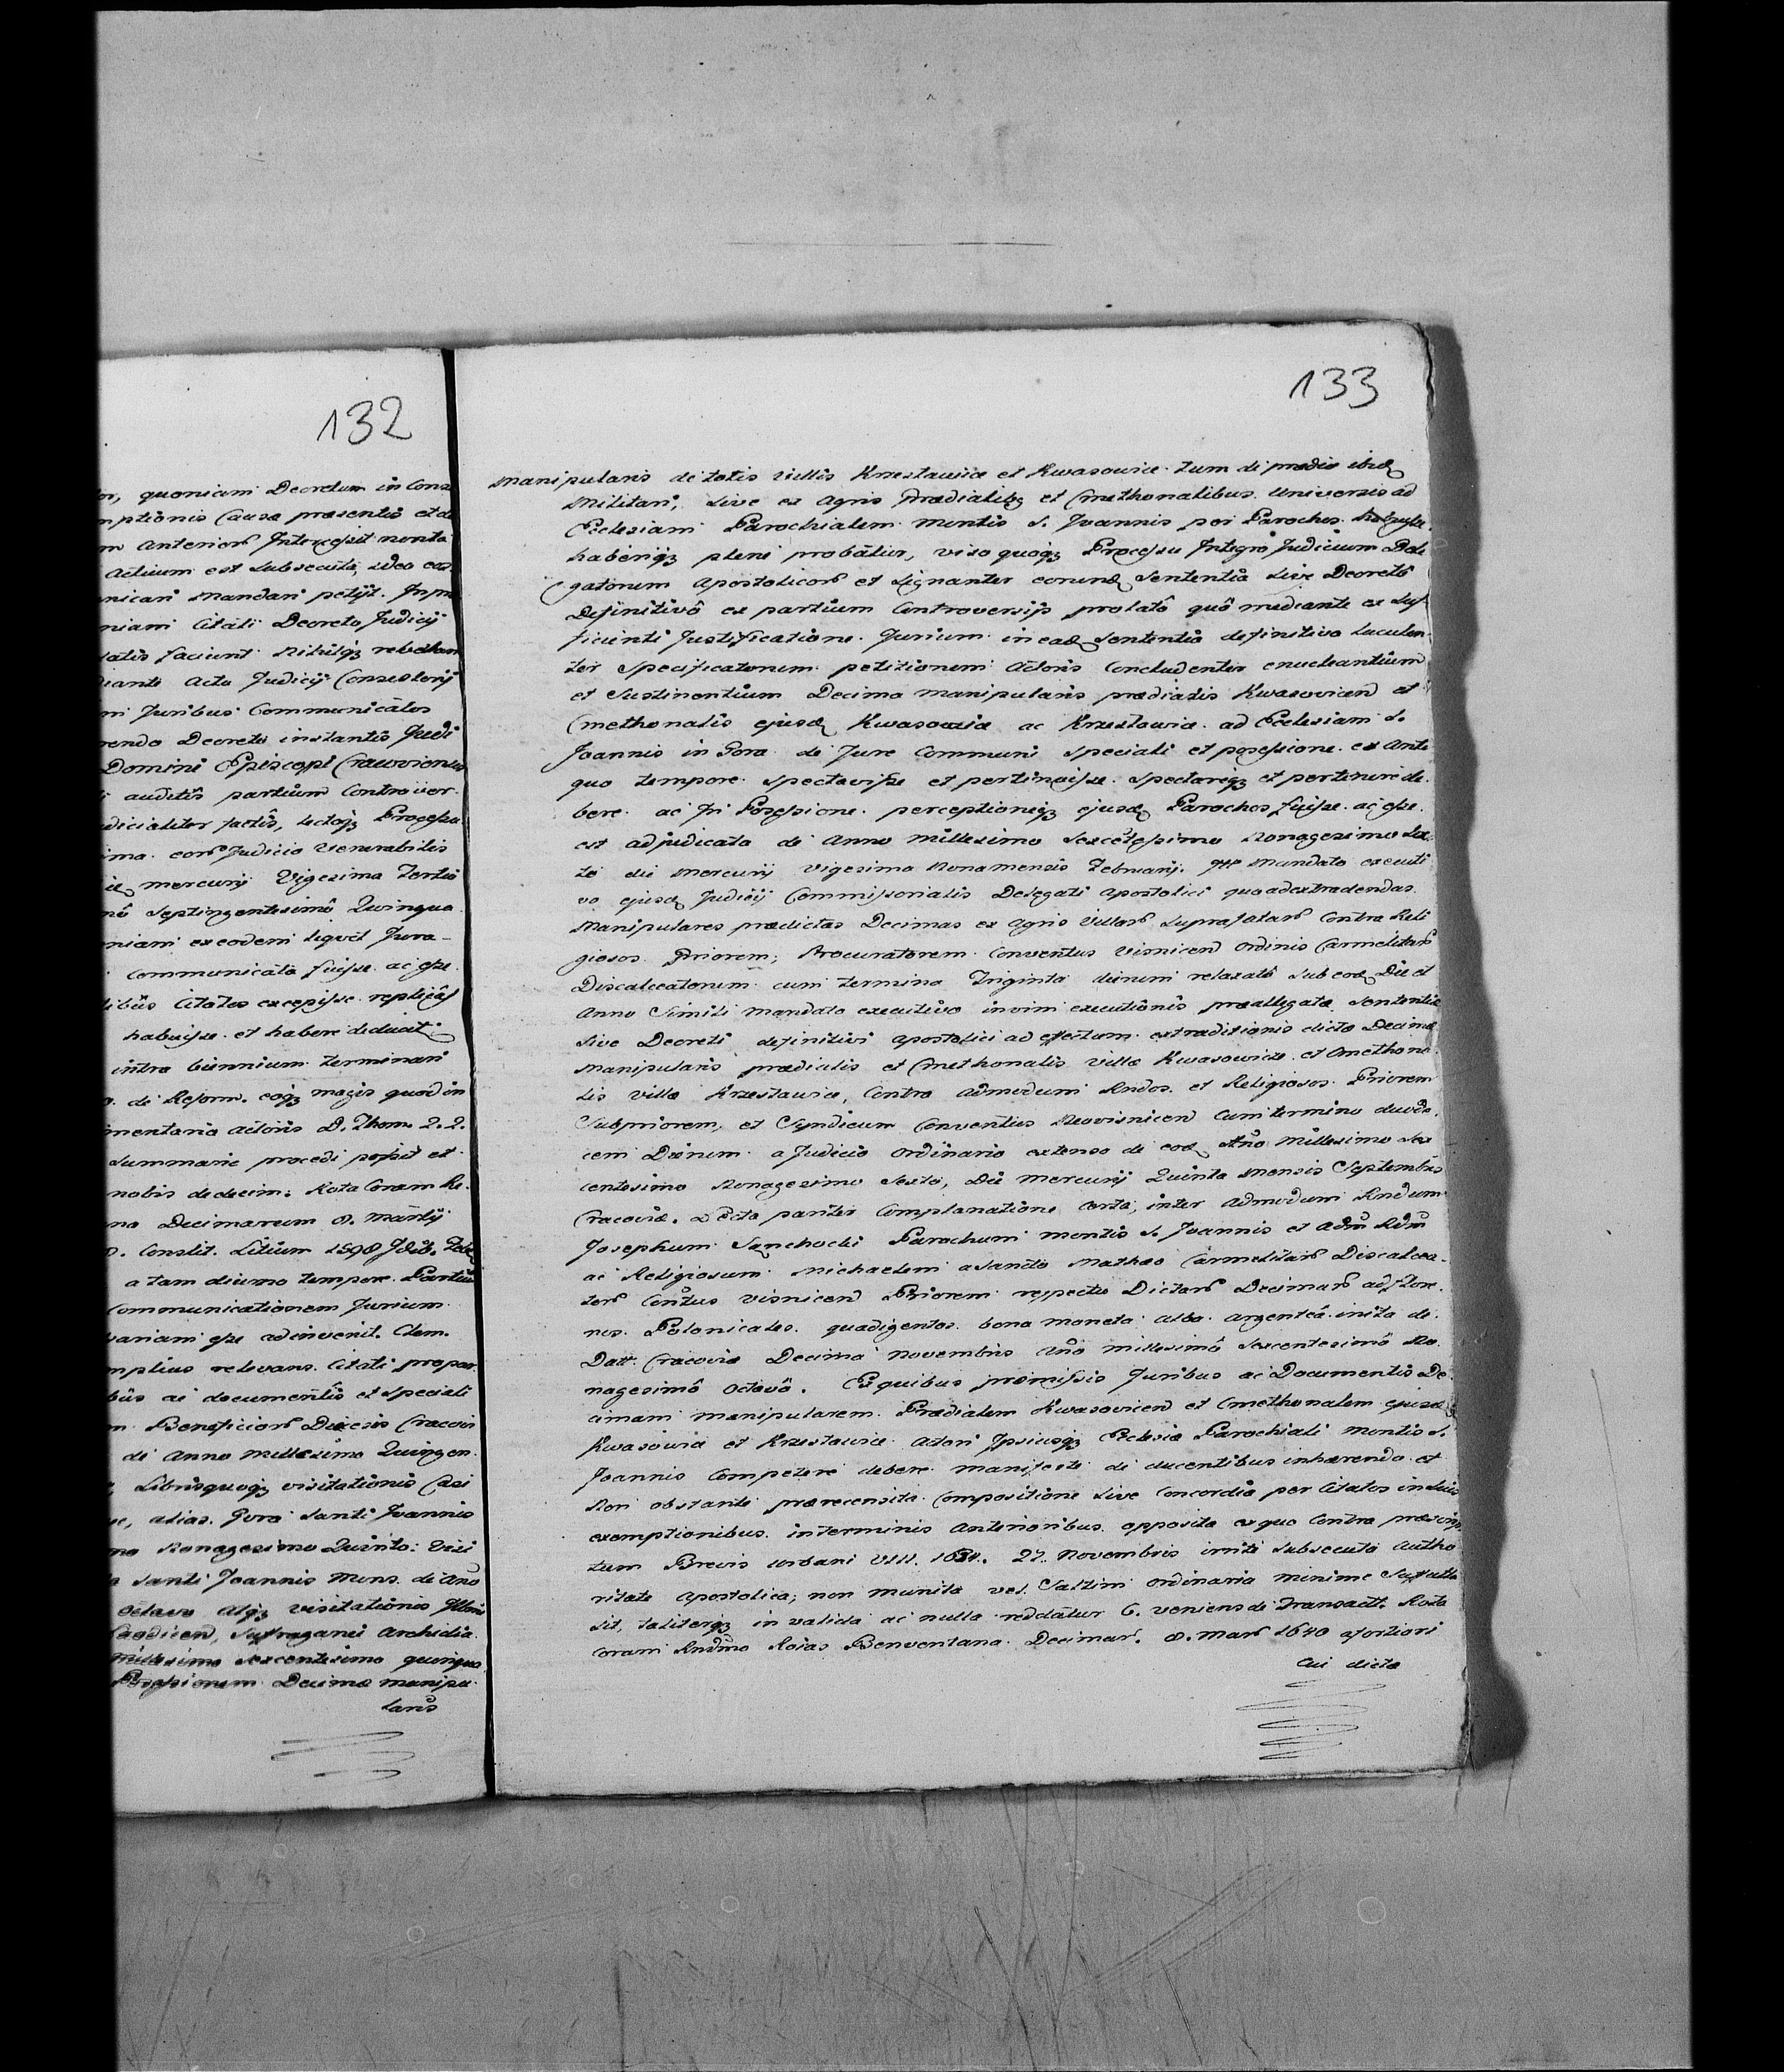 132
quoniam Decretum in Cons
mptionis Causæ præsentis et de
m Anterior Intercessit
Actium est Subsecuta, ideo eas
nicari Mandari petijt. In
niam Citati Decreto Judicij
satis faciunt Nihilq rebellan
diante Acto Judicij Consistorij
m Juribus Communicatos
rendo Decreto instantis Judi
Domini Episcopi Cracoviensis
i auditis partium Controver
dicialiter factis, lectoq Processu
ima Judicio Venerabilis
mercurij Vigesima Tertia
nô Septingentesimô Quinqua
niam ex eodem liquet Jura-
Communicata fuisse ac esse
libus Citatos excepisse replicas
habuisse et habere deducat
intra biennium terminari
de Reform. eoq magis quod in
mentaria actoris D. Thom. 2. 2.
Summarie procedi possit et
nobis de decim: Rota Coram Re.
na Decimarum 8. Martij
Constit. Litium 1598
a tam diurno tempore Partium
Communicationem Jurium
variam esse adinvenit. Clem.
mplius relevans. Citati propar
bus ac documentis et speciali
m Beneficior Diæcesis Cracovi
de Anno Millesimo Quingen
Librisquoq visitationis
alias Gora Santi Joannis
mo Nonagesimo Quinto: Visi
Santi Joannis Mons. de Año
Octavo Atq visitationis
Laodicen, Suffraganei Archidia
Millesimo Sexcentesimo quinqua
Possessionem Decimæ manipu
laris
133
Manipularis de totis Villis Krzestawice et Kwasowice tum de prædio
Militari, Sive ex Agris Prædialibq et Cmethonalibus Universis ad
Ecclesiam Parochialem Montis S. Joannis per Parochos
haberiq plene probatur, viso quoq Processu Integro Judicium Dele
gatorum Apostolicor et Signanter eorund Sententiâ Sive Decretô
Definitivô ex partium Controversijs prolatô quô mediante ex Suf
ficienti Justificatione Jurium in ead Sententia definitiva luculen
ter Specificatorum petitionem Actoris Concludenter enucleantium
et Sustinentium Decima Manipularis prædialis Kwasovicen et
Cmethonalis ejusd Kwasowice ac Krzestawice ad Ecclesiam S.
Joannis in Gora de Jure Communi Speciali et possessione ex Ante
quo tempore Spectavisse et pertinuisse Spectareq et pertinere de
bere ac In Possessione perceptioneq ejusd Parochos fuisse ac esse
est adjudicata de Anno Millesimo Sexcentesimo Nonagesimo Sex
to die Mercurij Vigesima Nona mensis Februarij. Mandato executi
vo ejusd Judicij Commissorialis Delegati Apostolici quo ad extradendas
Manipulares prædictas Decimas ex Agris Villar Suprafatar Contra Reli
giosos Priorem, Procuratorem Conventus Visnicen Ordinis Carmelitar
Discalceatorum cum termino Triginta dierum relaxatô Sub eod Die et
Anno Simili Mandato executivo in vim executionis præallegatæ Sententiæ
Sive Decreti definitivi Apostolici ad effectum extraditionis dictæ Decimæ
Manipularis prædialis et Cmethonalis Villæ Kwasowice et Cmethona
lis Villæ Krzestawice, Contra Admodum Rndos. et Religiosos Priorem
Subpriorem, et Syndicum Conventus Neovisnicen Cum termino duode
cem Dierum a Judicio Ordinario extenso de eod Año Millesimo Sex
centesimo Nonagesimo Sexto, Die Mercurij Quinta Mensis Septembris
Cracoviæ. Recta pariter Complanatione Certa, inter Admodum Rndum
Josephum Parochum montis S. Joannis et Adm Rdum
ac Religiosum Michaelem a Sancto Mathæo Carmelitar Discalcea-
tor Contus Visnicen Priorem respectu Dictar Decimar ad flore
nos Polonicales quadigentos bona moneta alba argenteâ inita de
Datt. Cracoviæ Decima Novembris Año Millesimô Sexcentesimô No
nagesimô Octavô. Ex quibus præmissis Juribus ac Documentis De
cimam Manipularem Prædialem Kwasovicen et Cmethonalem ejusd
Kwasowice et Krzestawice Actori Ipsiusq Ecclesiæ Parochiali Montis S.
Joannis Competere debere manifeste de ducentibus inhærendo et
Non obstante præ recensita Compositione Sive Concordia per Citatos in Suis
exemptionibus in terminis Anterioribus opposita ex quo Contra præscrip
tum Brevis Urbani VIII. 1634. 27. Novembris initi Subsecuta Autho
ritate Apostolica, non munita vel Saltim Ordinaria minime Suffulta
Sit, taliterq in valida ac nulla reddatur C. veniens de Transact. Rota
Coram Rndmo Rojas Benventana Decimar. 8. Mar 1640 afortiori
Cui dicta